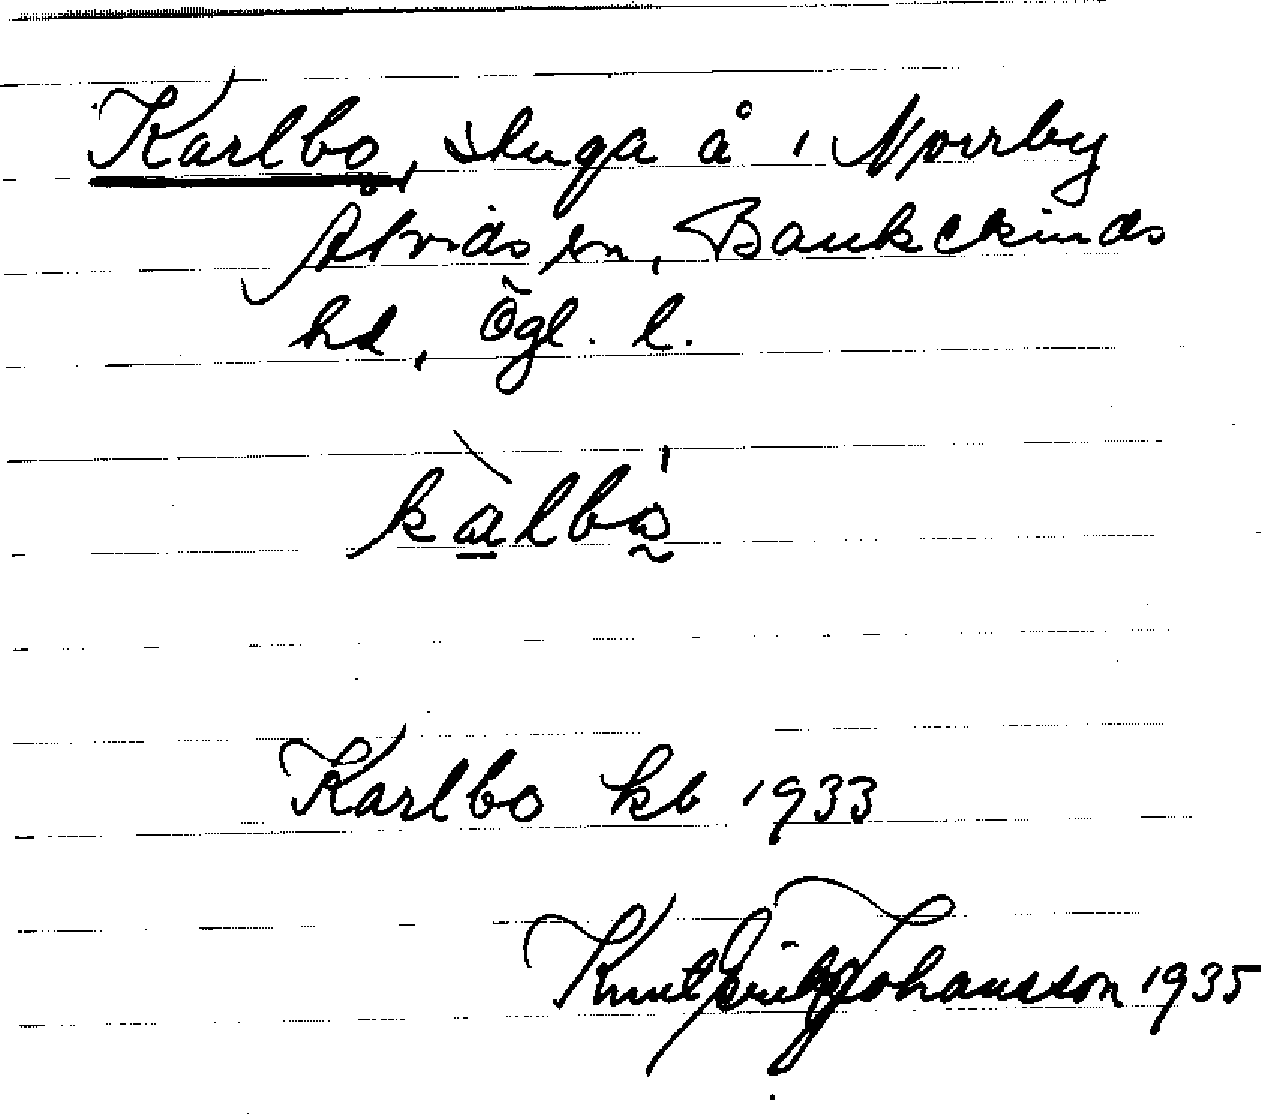 Karlbo, stuga å i Norrby
Åtvids sn, Bankekinds
hd, Ögl. l.
kàlbo̰̍
Karlbo kb 1933
Knut Erik Johansson 1935